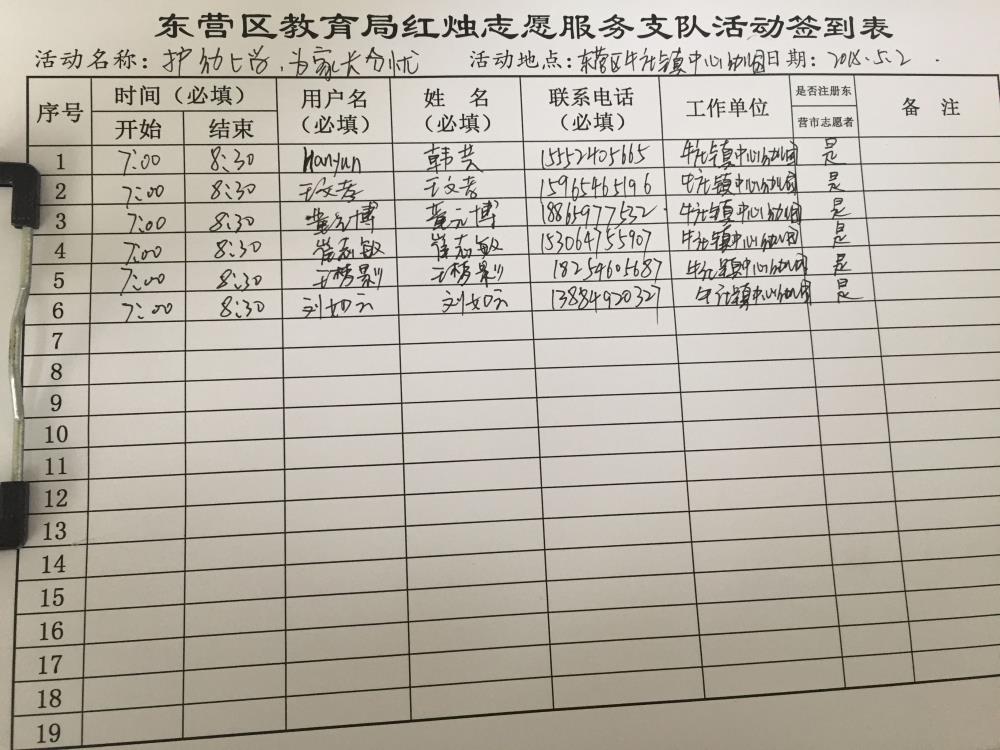 东营区教育局红烛志愿服务支队活动签到表
活动名称：护幼上学，为家长分忧 活动地点：东营区牛庄镇中心幼儿园 日期：2018.5.2.
序号 时间（必填） 用户名（必填） 姓 名（必填） 联系电话（必填） 工作单位 是否注册东营市志愿者 备 注
开始 结束
1 7:00 8:30 Hanyun 韩芸 15552405665 牛庄镇中心幼儿园 是
2 7:00 8:30 王文孝 王文孝 15965465196 牛庄镇中心幼儿园 是
3 7:00 8:30 董元博 董元博 18865977532 牛庄镇中心幼儿园 是
4 7:00 8:30 崔志敏 崔志敏 15306475907 牛庄镇中心幼儿园 是
5 7:00 8:30 18254605687 牛庄镇中心幼儿园 是
6 7:00 8:30 刘如云 刘如云 13884920327 牛庄镇中心幼儿园 是
7
8
9
10
11
12
13
14
15
16
17
18
19